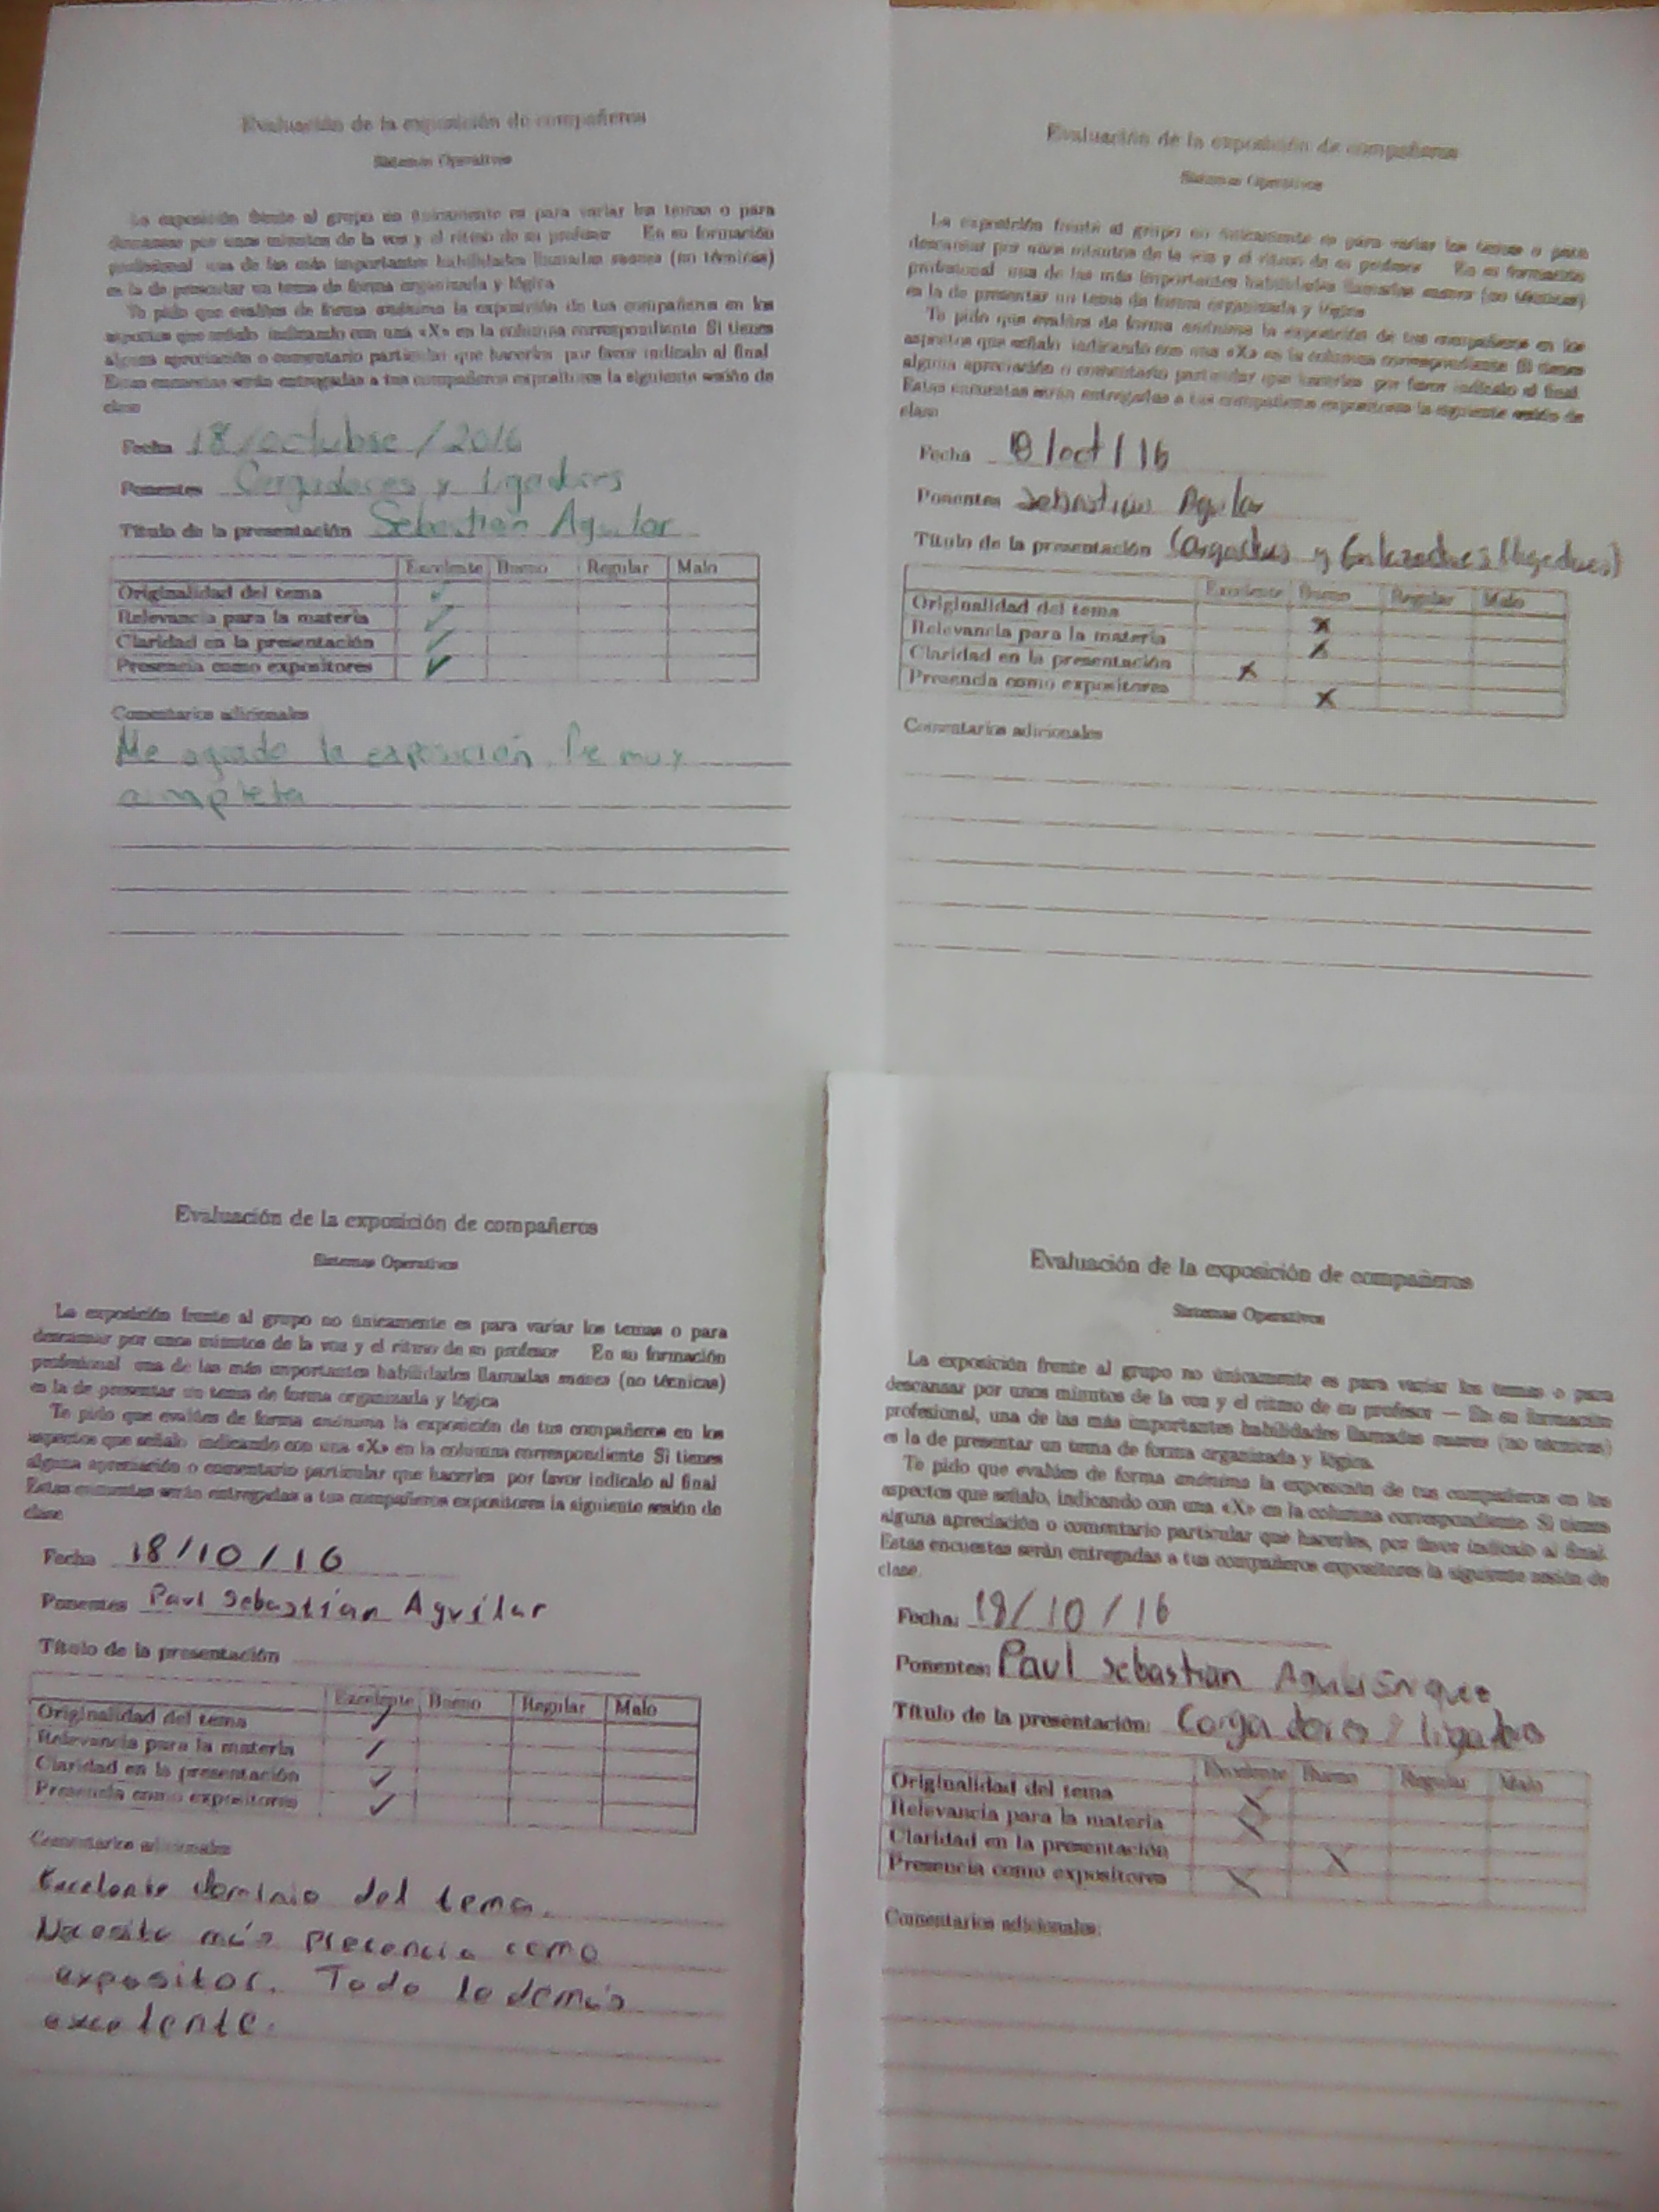 Evaluación de la exposición de compañeros
Sistemas Operativos
La exposición frente al grupo no únicamente es para variar los temas o para
descansar por unos minutos de la voz y el ritmo de su profesor En su formación
profesional una de las más importantes habilidades llamadas suaves (no técnicas)
es la de presentar un tema de forma organizada y lógica
Te pido que evalúes de forma anónima la exposición de tus compañeros en los
aspectos que señalo indicando con una «X» en la columna correspondiente Si tienes
alguna apreciación o comentario particular que hacerles por favor indícalo al final
Estas encuestas serán entregadas a tus compañeros expositores la siguiente sesión de
clase
Fecha 18/octubre/2016
Ponentes Cargadores y Ligadores
Título de la presentación Sebastian Aguilar
Excelente Bueno Regular Malo
Originalidad del tema ✓
Relevancia para la materia ✓
Claridad en la presentación ✓
Presencia como expositores ✓
Comentarios adicionales
Me agrado la exposición. muy
completa
Evaluación de la exposición de compañeros
Sistemas Operativos
La exposición frente al grupo no únicamente es para variar los temas o para
descansar por unos minutos de la voz y el ritmo de su profesor En su formación
profesional una de las más importantes habilidades llamadas suaves (no técnicas)
es la de presentar un tema de forma organizada y lógica
Te pido que evalúes de forma anónima la exposición de tus compañeros en los
aspectos que señalo indicando con una «X» en la columna correspondiente Si tienes
alguna apreciación o comentario particular que hacerles por favor indícalo al final
Estas encuestas serán entregadas a tus compañeros expositores la siguiente sesión de
clase
Fecha 18/oct/16
Ponentes Sebastian Aguilar
Título de la presentación Cargadores y (ligadores)
Excelente Bueno Regular Malo
Originalidad del tema X
Relevancia para la materia X
Claridad en la presentación X
Presencia como expositores X
Comentarios adicionales
Evaluación de la exposición de compañeros
Sistemas Operativos
La exposición frente al grupo no únicamente es para variar los temas o para
descansar por unos minutos de la voz y el ritmo de su profesor En su formación
profesional una de las más importantes habilidades llamadas suaves (no técnicas)
es la de presentar un tema de forma organizada y lógica
Te pido que evalúes de forma anónima la exposición de tus compañeros en los
aspectos que señalo indicando con una «X» en la columna correspondiente Si tienes
alguna apreciación o comentario particular que hacerles por favor indícalo al final
Estas encuestas serán entregadas a tus compañeros expositores la siguiente sesión de
clase
Fecha 18/10/16
Ponentes Paul Sebastian Aguilar
Título de la presentación
Excelente Bueno Regular Malo
Originalidad del tema ✓
Relevancia para la materia ✓
Claridad en la presentación ✓
Presencia como expositores ✓
Comentarios adicionales
Excelente dominio del tema.
Necesita más presencia como
expositor. Todo lo demás
excelente.
Evaluación de la exposición de compañeros
Sistemas Operativos
La exposición frente al grupo no únicamente es para variar los temas o para
descansar por unos minutos de la voz y el ritmo de su profesor — En su formación
profesional, una de las más importantes habilidades llamadas suaves (no técnicas)
es la de presentar un tema de forma organizada y lógica.
Te pido que evalúes de forma anónima la exposición de tus compañeros en los
aspectos que señalo, indicando con una «X» en la columna correspondiente. Si tienes
alguna apreciación o comentario particular que hacerles, por favor indícalo al final.
Estas encuestas serán entregadas a tus compañeros expositores la siguiente sesión de
clase.
Fecha: 18/10/16
Ponentes: Paul Sebastian
Título de la presentación: Cargadores y ligadores
Excelente Bueno Regular Malo
Originalidad del tema X
Relevancia para la materia X
Claridad en la presentación X
Presencia como expositores X
Comentarios adicionales: